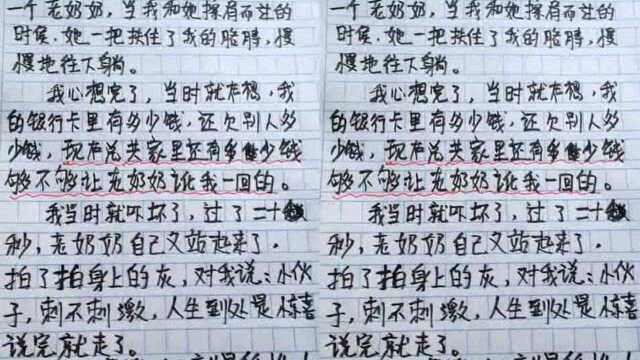 一个老奶奶，当我和她擦肩而过的
时候，她一把扶住了我的胳膊，慢
慢地往下躺。
我心想完了，当时就在想，我
的银行卡里有多少钱，还欠别人多
少钱，现在总共家里还有多少钱
够不够让老奶奶讹我一回的。
我当时就吓坏了，过了二十
秒，老奶奶自己又站起来了。
拍了拍身上的灰，对我说：小伙
子，刺不刺激，人生到处是惊喜
说完就走了。
一个老奶奶，当我和她擦肩而过的
时候，她一把扶住了我的胳膊，慢
慢地往下躺。
我心想完了，当时就在想，我
的银行卡里有多少钱，还欠别人多
少钱，现在总共家里还有多少钱
够不够让老奶奶讹我一回的。
我当时就吓坏了，过了二十
秒，老奶奶自己又站起来了。
拍了拍身上的灰，对我说：小伙
子，刺不刺激，人生到处是惊喜
说完就走了。